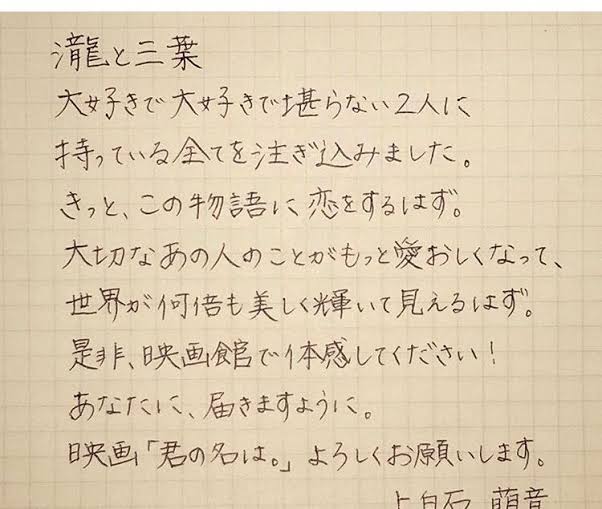 瀧と三葉
大好きで大好きで堪らない2人に
持っている全てを注ぎ込みました。
きっと、この物語に恋をするはず。
大切なあの人のことがもっと愛おしくなって、
世界が何倍も美しく輝いて見えるはず。
是非、映画館で体感してください!
あなたに、届きますように。
映画「君の名は。」よろしくお願いします。
上白石 萌音